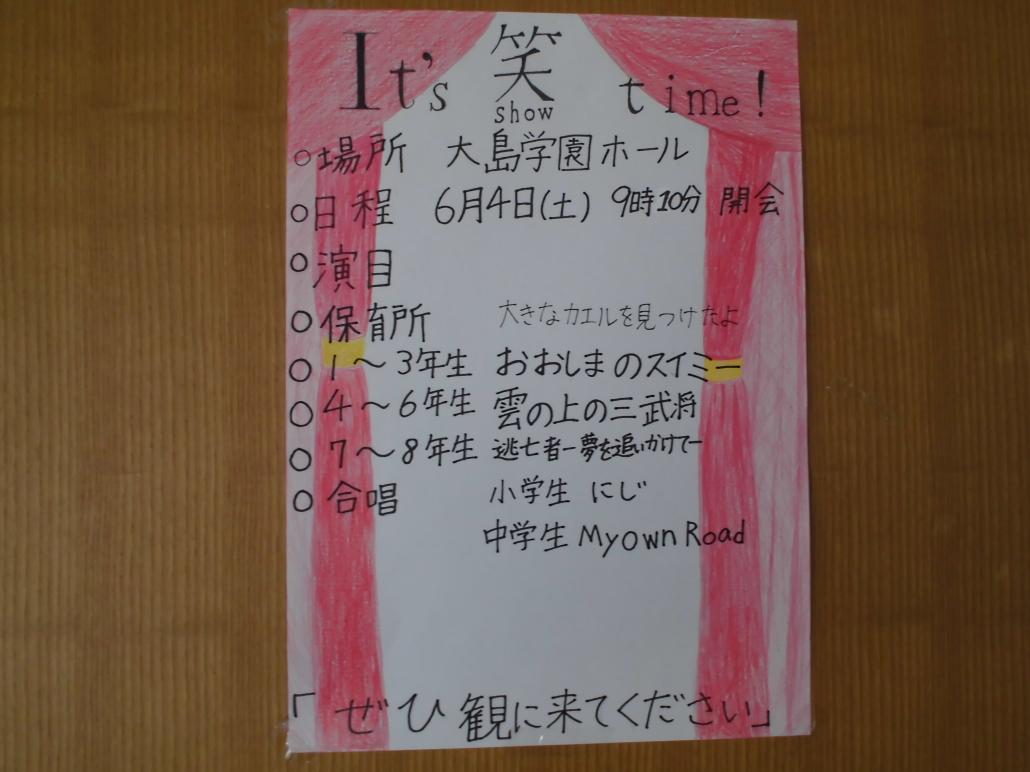 It's 笑 time!
show
○場所 大島学園ホール
○日程 6月4日(土) 9時10分 開会
○演目
○保育所 大きなカエルを見つけたよ
○1〜3年生 おおしまのスイミー
○4〜6年生 雲の上の三武将
○7〜8年生 逃亡者ー夢を追いかけてー
○合唱 小学生 にじ
中学生 My own Road
「ぜひ観に来てください」